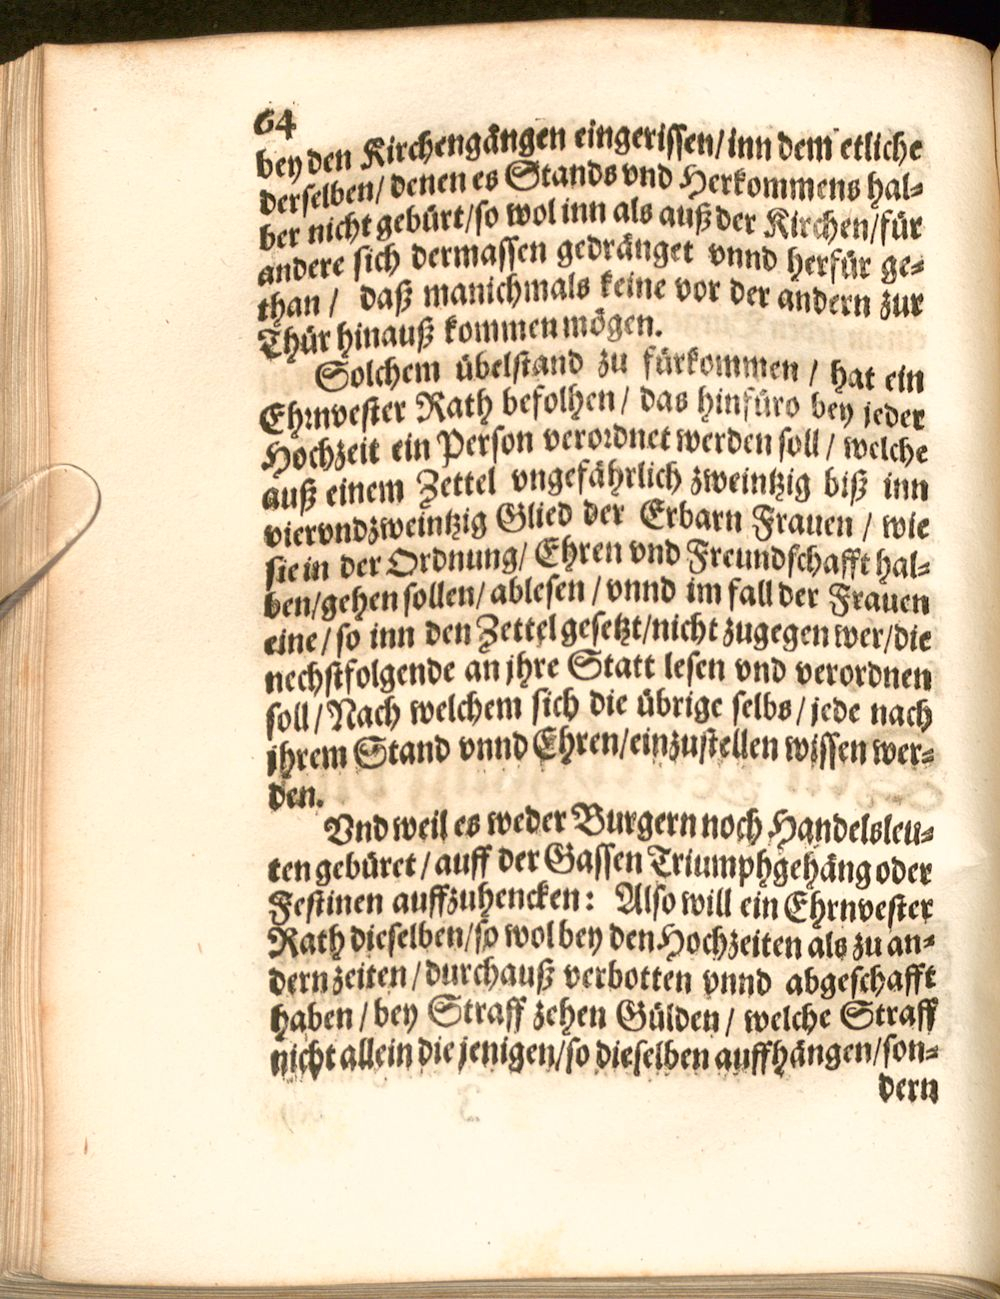 64
bey den Kirchengängen eingerissen/ inn dem etliche
derselben/ denen es Stands vnd Herkommens hal-
ber nicht gebürt/ so wol inn als auß der Kirchen/ für
andere sich dermassen gedränget vnnd herfür ge-
than / daß manichmals keine vor der andern zur
Thür hinauß kommen mögen.
Solchem übelstand zu fürkommen / hat ein
Ehrnvester Rath befolhen / das hinfüro bey jeder
Hochzeit ein Person verordnet werden soll / welche
auß einem Zettel vngefährlich zweintzig biß inn
viervndzweintzig Glied der Erbarn Frauen / wie
sie in der Ordnung/ Ehren vnd Freundschafft hal-
ben/ gehen sollen/ ablesen / vnnd im fall der Frauen
eine / so inn den Zettel gesetzt/ nicht zugegen wer/ die
nechstfolgende an jhre Statt lesen vnd verordnen
soll / Nach welchem sich die übrige selbs / jede nach
jhrem Stand vnnd Ehren/ einzustellen wissen wer-
den.
Vnd weil es weder Burgern noch Handelsleu-
ten gebüret / auff der Gassen Triumphgehäng oder
Festinen auffzuhencken: Also will ein Ehrnvester
Rath dieselben/ so wol bey den Hochzeiten als zu an-
dern zeiten / durchauß verbotten vnnd abgeschafft
haben / bey Straff zehen Gülden / welche Straff
nicht allein die jenigen/ so dieselben auffhängen/ son-
dern